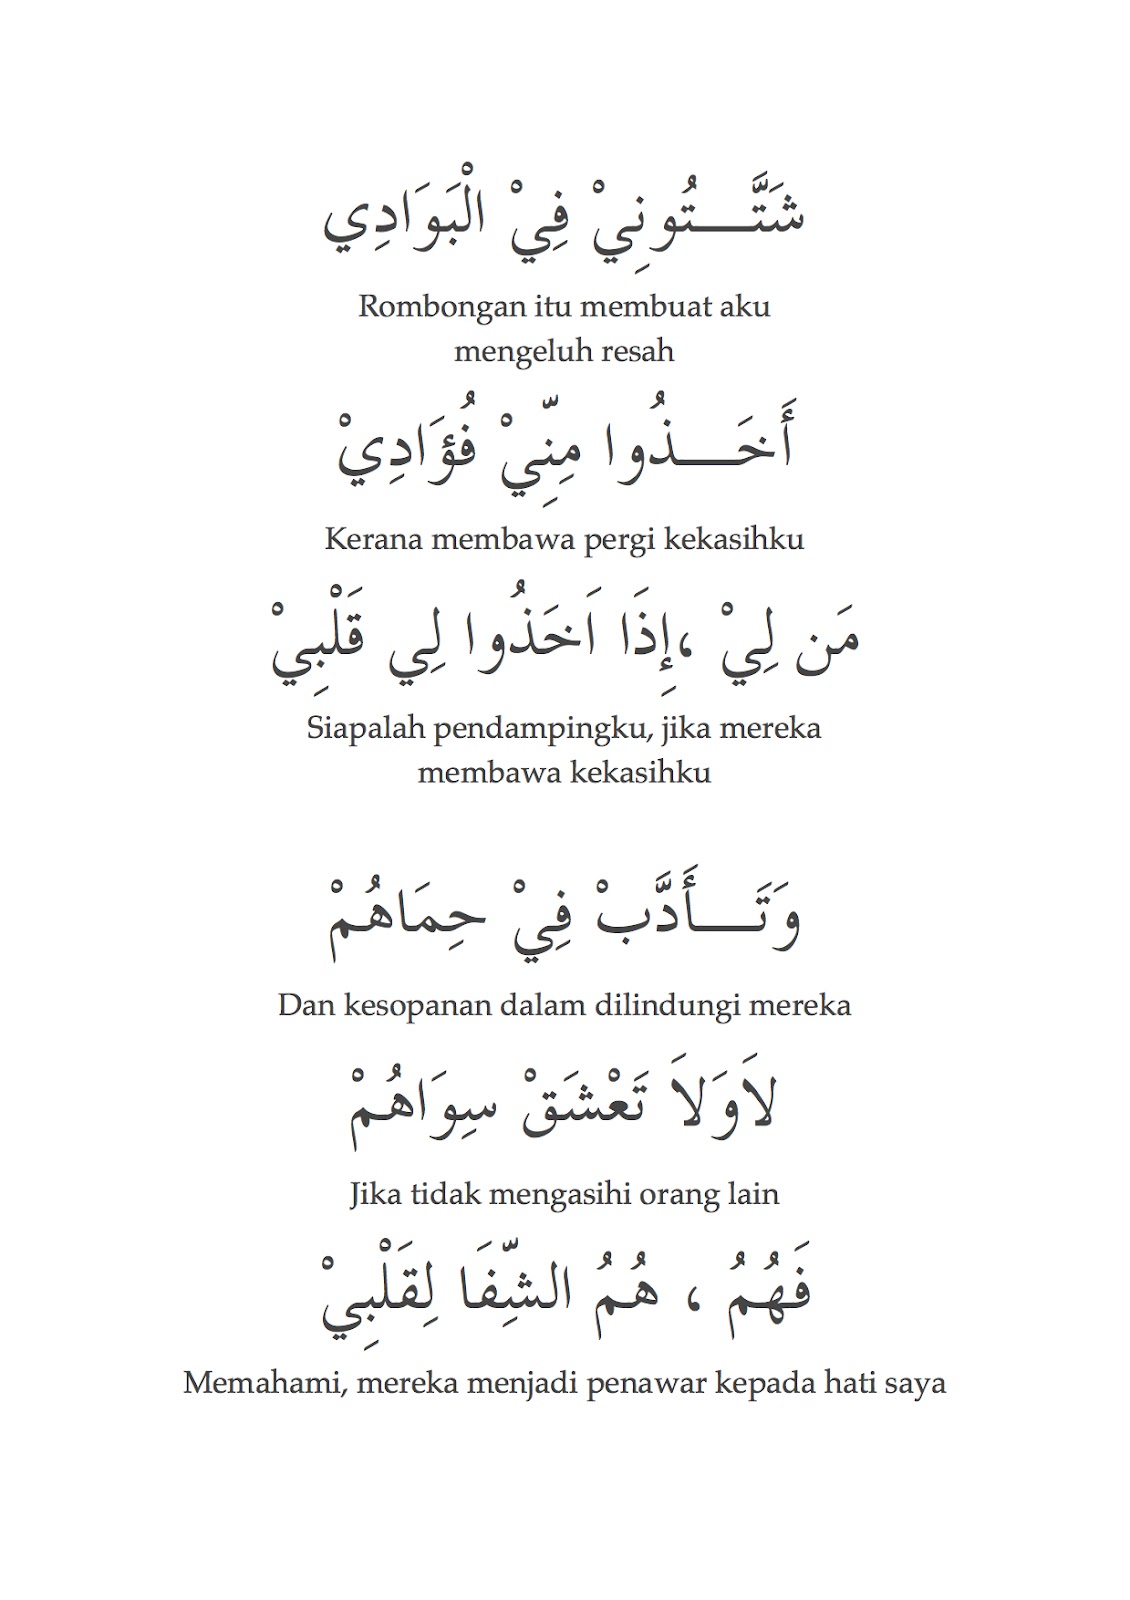 شَتَّـــتُونِيْ فِيْ الْبَوَادِي
Rombongan itu membuat aku
mengeluh resah
أَخَـــذُوا مِنِّيْ فُؤَادِيْ
Kerana membawa pergi kekasihku
مَن لِيْ ،إِذَا اَخَذُوا لِي قَلْبِيْ
Siapalah pendampingku, jika mereka
membawa kekasihku
وَتَـــأَدَّبْ فِيْ حِمَاهُمْ
Dan kesopanan dalam dilindungi mereka
لاَوَلاَ تَعْشَقْ سِوَاهُمْ
Jika tidak mengasihi orang lain
فَهُمُ ، هُمُ الشِّفَا لِقَلْبِيْ
Memahami, mereka menjadi penawar kepada hati saya